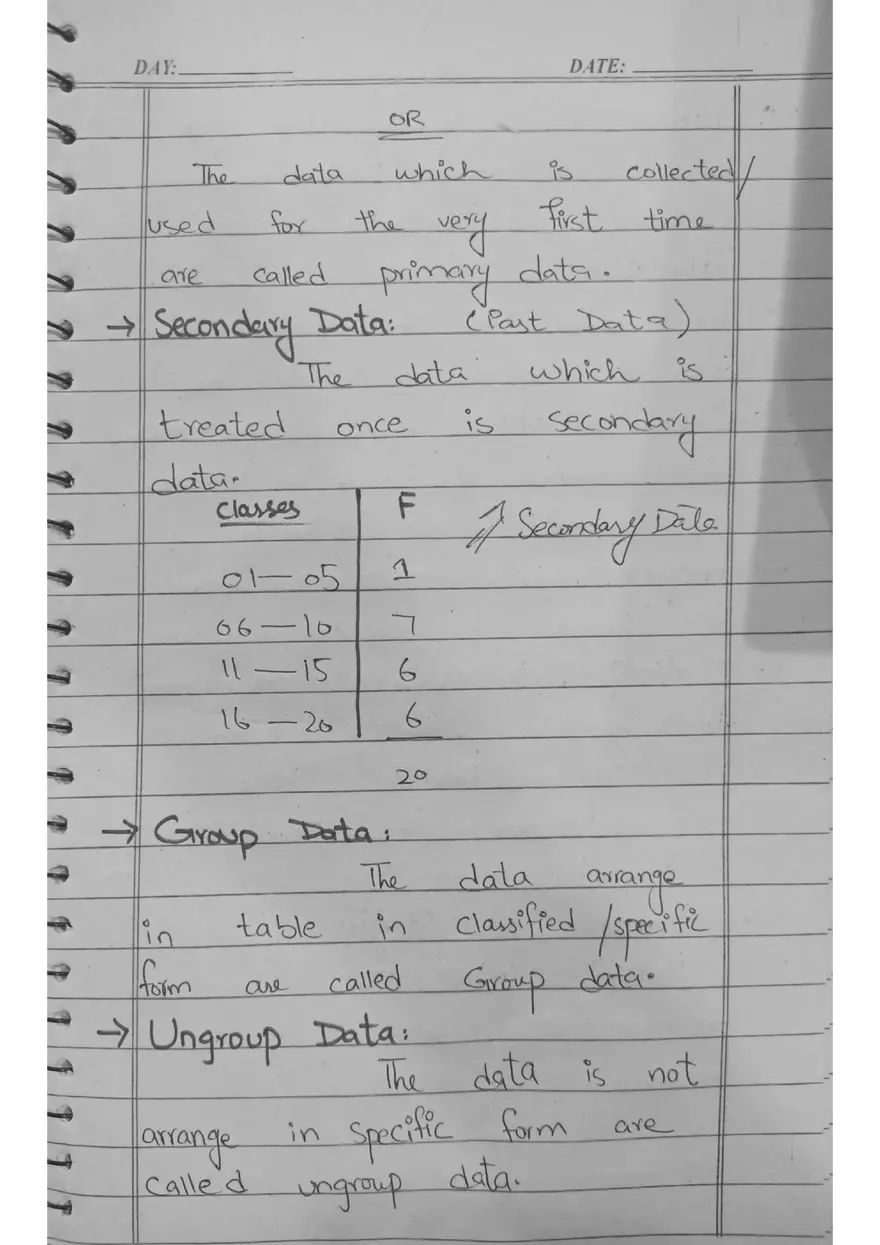 DAY: DATE:
OR
The data which is collected/
used for the very first time
are called primary data.
→ Secondary Data: (Past Data)
The data which is
treated once is secondary
data.
Classes F ⇗ Secondary Data
01—05 1
06—10 7
11—15 6
16—20 6
20
→ Group Data:
The data arrange
in table in classified/specific
form are called Group data.
→ Ungroup Data:
The data is not
arrange in specific form are
called ungroup data.